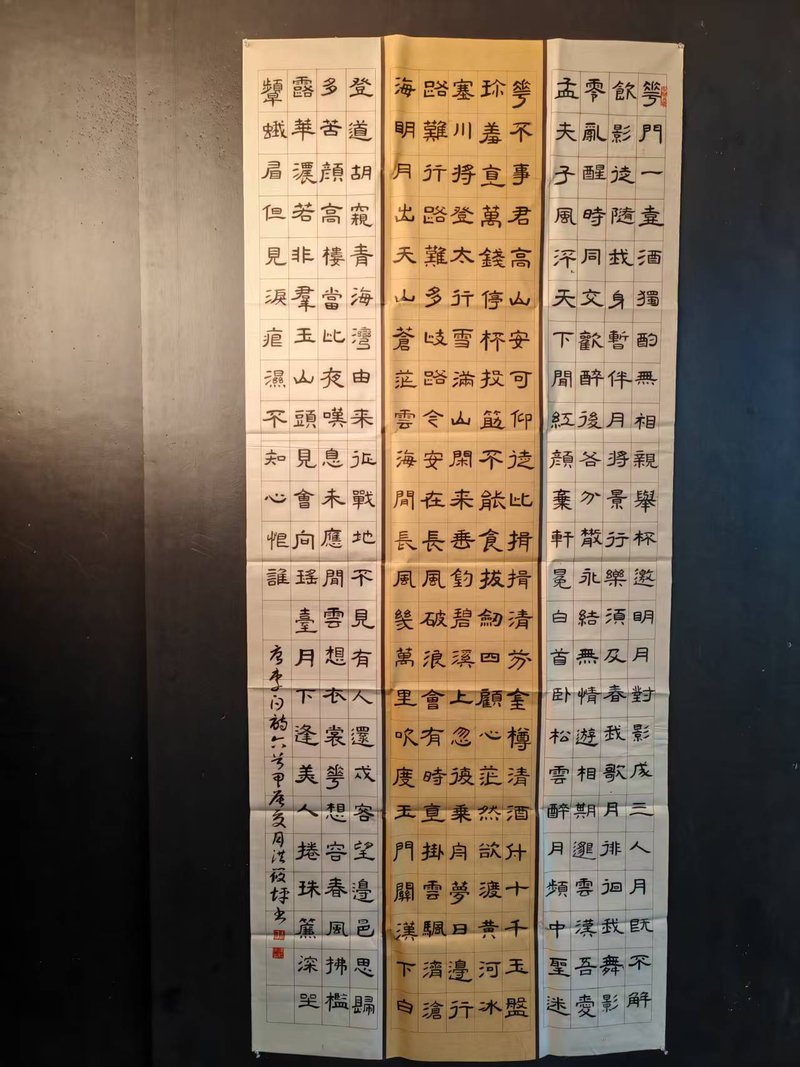 花門一壺酒獨酌無相親舉杯邀明月對影成三人月既不解
飲影徒隨我身暫伴月將景行樂須及春我歌月徘徊我舞影
零亂醒時同交歡醉後各分散永結無情遊相期邈雲漢吾愛
孟夫子風流天下聞紅顏棄軒冕白首臥松雲醉月頻中聖迷
花不事君高山安可仰徒此揖揖清芬金樽清酒斗十千玉盤
珍羞直萬錢停杯投筯不能食拔劍四顧心茫然欲渡黃河冰
塞川將登太行雪滿山閑来垂釣碧溪上忽復乘舟夢日邊行
路難行路難多歧路今安在長風破浪會有時直掛雲帆濟滄
海明月出天山蒼茫雲海間長風幾萬里吹度玉門關漢下白
登道胡窺青海灣由来征戰地不見有人還戍客望邊邑思歸
多苦顏高樓當此夜嘆息未應閒雲想衣裳花想容春風拂檻
露華濃若非羣玉山頭見會向瑤臺月下逢美人捲珠簾深坐
顰蛾眉但見淚痕濕不知心恨誰
唐李白詩六首甲辰夏月洪坪書